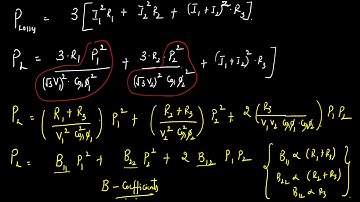 P_Lossy = 3 [ I_1^2 R_1 + I_2^2 R_2 + (I_1+I_2)^2 · R_3 ]
P_L = 3·R_1 · P_1^2 / (√3 V_1)^2 Cos^2 φ_1 + 3·R_2 · P_2^2 / (√3 V_2)^2 Cos φ_2^2 + (I_1+I_2)^2 · R_3
P_L = ( R_1 + R_3 / V_1^2 Cos^2 φ_1 ) P_1^2 + ( R_2 + R_3 / V_2^2 Cos^2 φ_2 ) P_2^2 + 2 ( R_3 / V_1 V_2 Cos φ_1 · Cos φ_2 ) P_1 P_2
P_L = B_11 P_1^2 + B_22 P_2^2 + 2 B_12 P_1 P_2
B - Coefficients
{ B_11 ∝ (R_1 + R_3)
B_22 ∝ (R_2 + R_3)
B_12 ∝ R_3 }